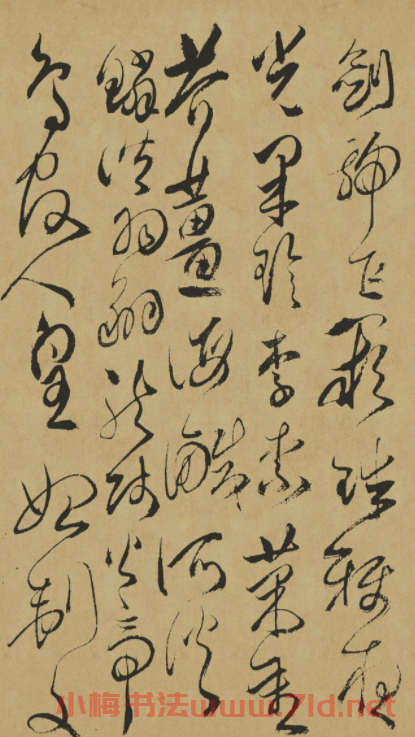 劍號巨闕珠稱夜
光果珍李柰菜重
芥薑海鹹河淡
鱗潛羽翔龍師火帝
鳥官人皇始制文
小梅书法www.7ld.net